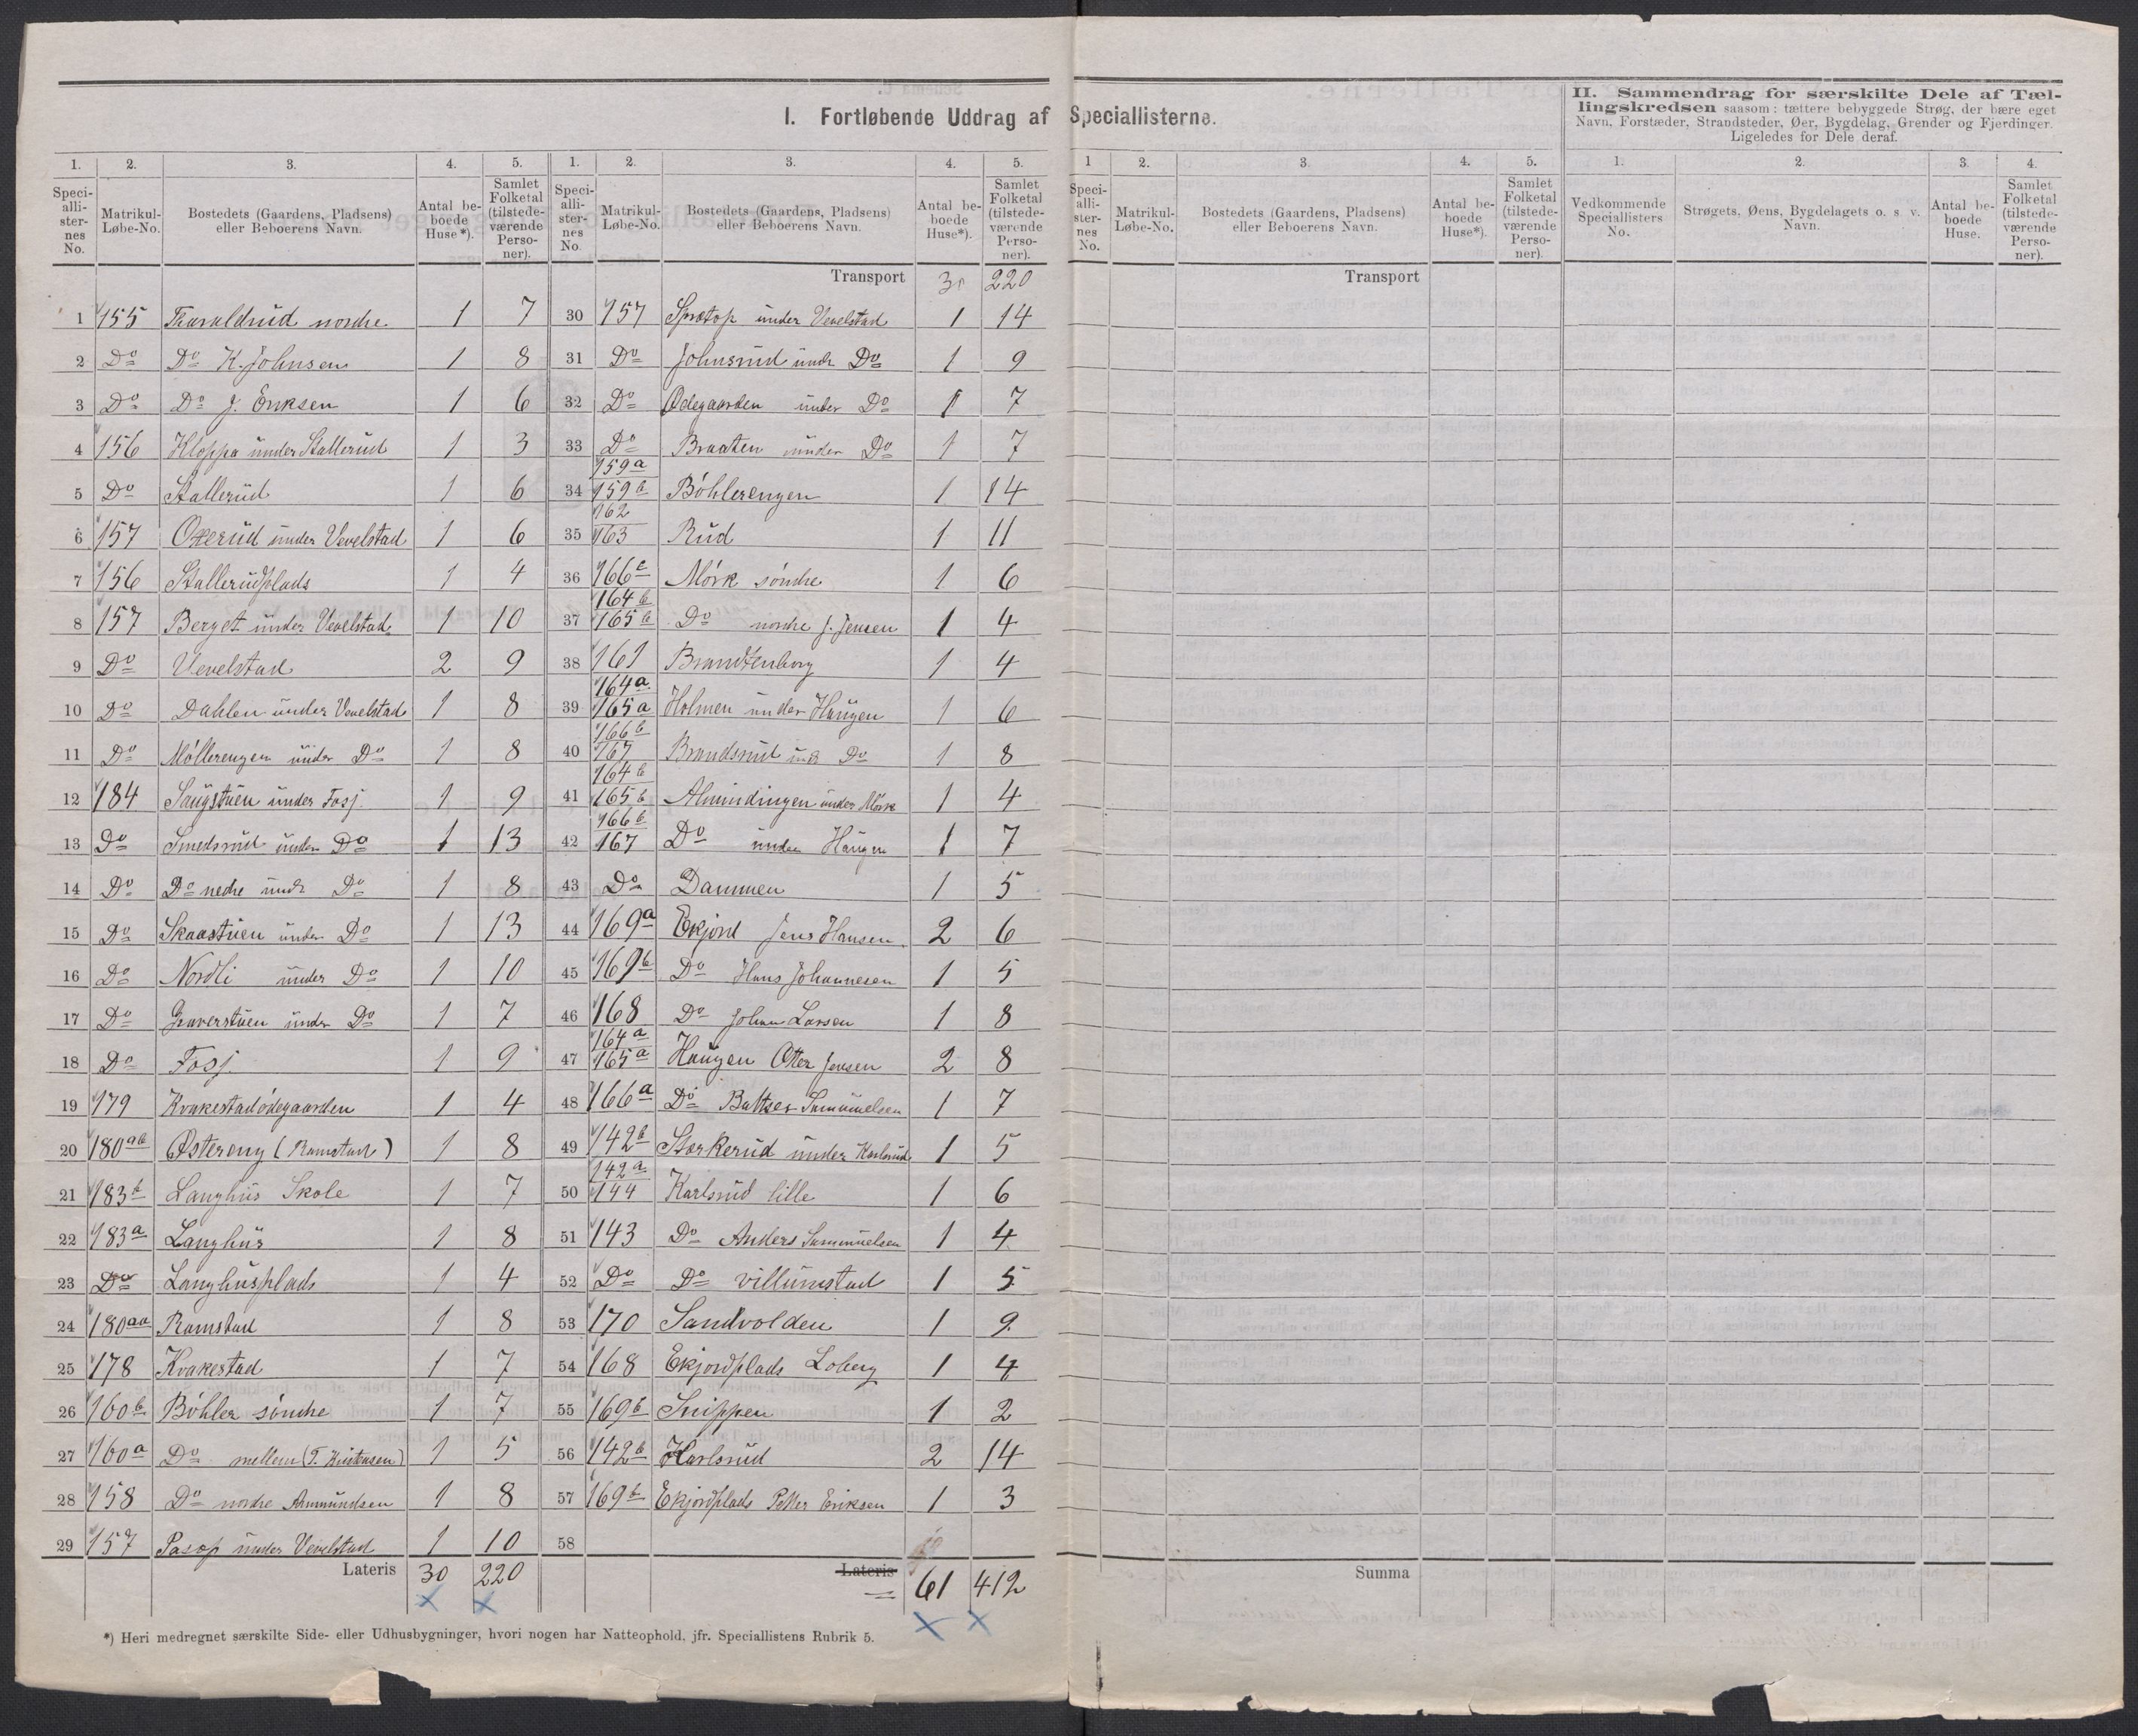 I. Fortløbende Uddrag af Speciallisterne.
II. Sammendrag for særskilte Dele af Tællingskredsen saasom: tættere bebyggede Strøg, der bære eget
Navn, Forstæder, Strandsteder, Øer, Bygdelag, Grender og Fjerdinger.
Ligeledes for Dele deraf.
1. 2. 3. 4. 5. 1. 2. 3. 4. 5. 1 2. 3. 4. 5. 1. 2. 3. 4.
Speciallisternes No. Matrikul-Løbe-No. Bostedets (Gaardens, Pladsens) eller Beboerens Navn. Antal beboede Huse*). Samlet Folketal (tilstedeværende Personer).
Speciallisternes No. Matrikul-Løbe-No. Bostedets (Gaardens, Pladsens) eller Beboerens Navn. Antal beboede Huse*). Samlet Folketal (tilstedeværende Personer).
Speciallisternes No. Matrikul-Løbe-No. Bostedets (Gaardens, Pladsens) eller Beboerens Navn. Antal beboede Huse*). Samlet Folketal (tilstedeværende Personer).
Vedkommende Speciallisters No. Strøgets, Øens, Bygdelagets o. s. v. Navn. Antal beboede Huse. Samlet Folketal (tilstedeværende Personer).
1 155 Tharaldrud nordre 1 7
2 Do Do K. Johnsen 1 8
3 Do Do J. Eriksen 1 6
4 156 Kloppa under Stallerud 1 3
5 Do Stallerud 1 6
6 157 Oxerud under Vevelstad 1 6
7 156 Stallerudplads 1 4
8 157 Berget under Vevelstad 1 10
9 Do Vevelstad 2 9
10 Do Dahlen under Vevelstad 1 8
11 Do Möllerengen under Do 1 8
12 184 Saugstuen under Fosj 1 9
13 Do Smedsrud under Do 1 13
14 Do Do nedre undr Do 1 8
15 Do Skaastuen under Do 1 13
16 Do Nordli under Do 1 10
17 Do Graverstuen under Do 1 7
18 Do Fosj 1 9
19 179 Kvakestadödegaarden 1 4
20 180ab Østereng (Ramstad) 1 8
21 183b Langhus Skole 1 7
22 183a Langhus 1 8
23 Do Langhusplads 1 4
24 180aa Ramstad 1 8
25 178 Kvakestad 1 7
26 160b Böhler söndre 1 7
27 160a Do mellem (T. Kristensen) 1 5
28 158 Do nordre Ammundsen 1 8
29 157 Pasop under Vevelstad 1 10
Lateris 30 220
Transport 30 220
30 157 Sprætop under Vevelstad 1 14
31 Do Johnsrud undr Do 1 9
32 Do Ødegaarden under Do 1 7
33 Do Braaten under Do 1 7
34 159a 159b Böhlerengen 1 14
35 162 163 Rud 1 11
36 166c Mörk söndre 1 6
37 164b 165b Do nordre J. Jensen 1 4
38 161 Brandtenborg 1 4
39 164a 165a Holmen under Haugen 1 6
40 166b 167 Brandsrud und Do 1 8
41 164b 165b Almindingen under Mörk 1 4
42 166b 167 Do under Haugen 1 7
43 Do Dammen 1 5
44 169a Ekjord Jens Hansen 2 6
45 169b Do Hans Johannesen 1 5
46 168 Do Johan Larsen 1 8
47 164a 165a Haugen Otter Jensen 2 8
48 166a Do Baltser Sammuelsen 1 7
49 142b Storkerud under Karlsrud 1 5
50 142a 144 Karlsrud lille 1 6
51 143 Do Anders Sammuelsen 1 4
52 Do Do villumstad 1 5
53 170 Sandvolden 1 9
54 168 Ekjordplads Loberg 1 4
55 169b Snippen 1 2
56 142b Karlsrud 2 14
57 169b Ekjordplads Petter Eriksen 1 3
58
Lateris = 61 412
Transport
Summa
*) Heri medregnet særskilte Side- eller Udhusbygninger, hvori nogen har Natteophold, jfr. Speciallistens Rubrik 5.